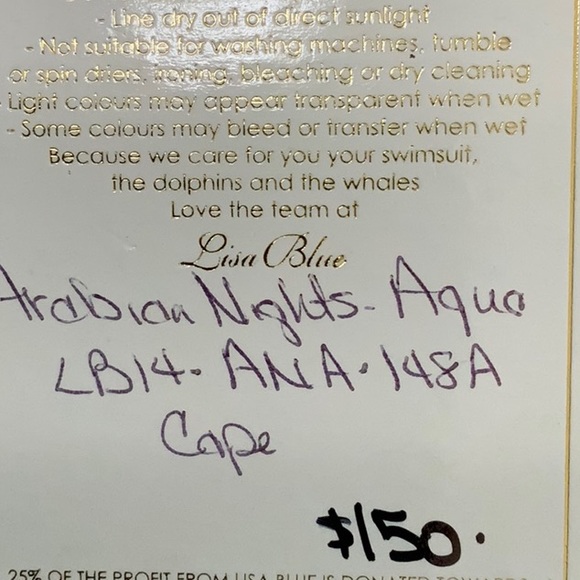 - Line dry out of direct sunlight
- Not suitable for washing machines, tumble
or spin driers, ironing, bleaching or dry cleaning
Light colours may appear transparent when wet
- Some colours may bleed or transfer when wet
Because we care for you your swimsuit,
the dolphins and the whales
Love the team at
Lisa Blue
Arabian Nights - Aqua
LB14. ANA. 148A
Cape
$150.
25% OF THE PROFIT FROM LISA BLUE IS DONATED